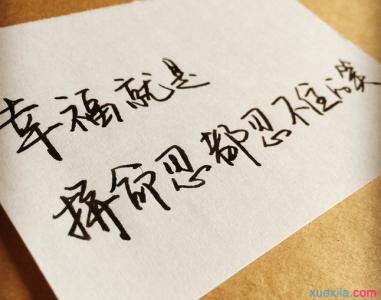 幸福就是
拼命忍都忍不住笑
xuexila.com